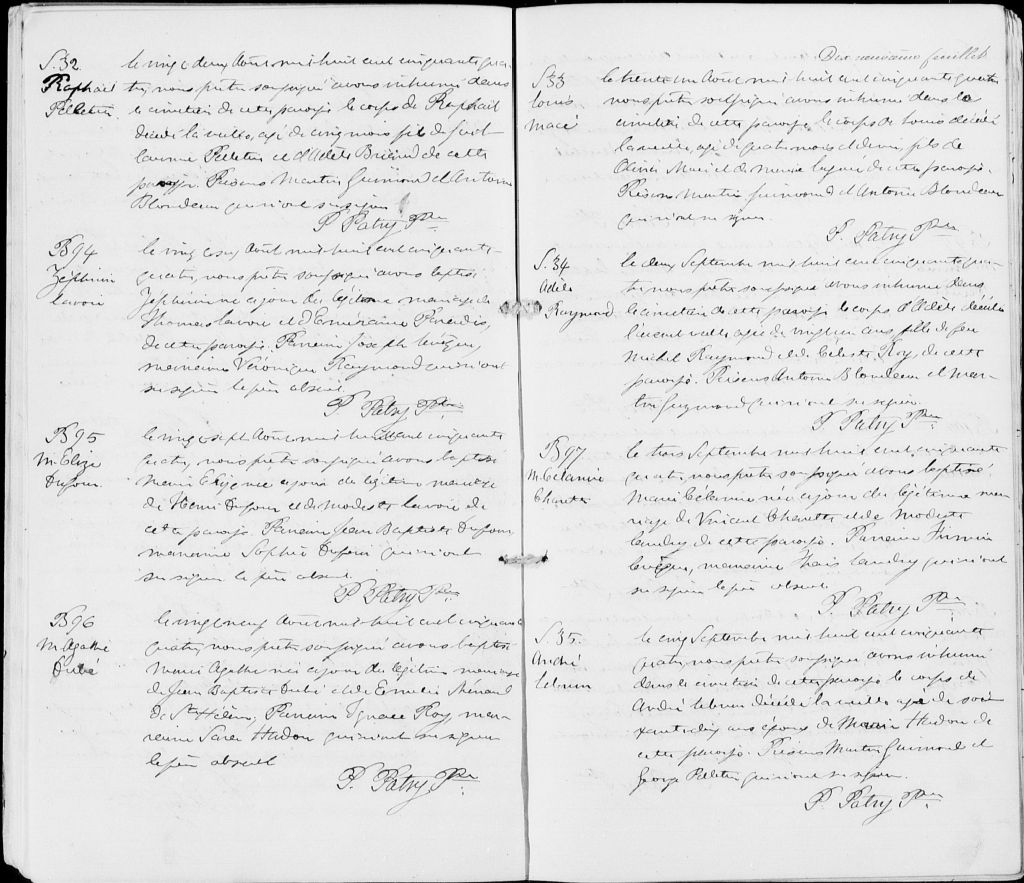 S. 32
Raphaël
Pelletier
le vingt deux Août mil huit cent cinquante qua-
tre, nous prêtre soussigné avons inhumé dans
le cimetière de cette paroisse le corps de Raphaël
décédé la veille, agé de cinq mois fils de
Pelletier et d'Adèle de cette
paroisse. Présens Martin Guimond et Antoine
Blondeau qui n'ont su signer
P. Patry Ptre
B 94
Zéphirin
Lavoie
le vingt Août mil huit cent cinquante-
quatre, nous prêtre soussigné avons baptisé
Zéphirin né ce jour du légitime mariage de
Thomas Lavoie et d'Emérance Paradis,
de cette paroisse. Parrain Joseph Levêque,
marraine Véronique Raymond qui n'ont
su signer le père absent.
P. Patry Ptre
B 95
M. Elize
Dufour.
le vingt sept Août mil huit cent cinquante
quatre, nous prêtre soussigné avons baptisé
Marie née ce jour du légitime mariage
de Henri Dufour et de Modeste Lavoie de
cette paroisse. Parrain Jean Baptiste Dufour,
marraine Sophie Dufour qui n'ont
su signer le père absent.
P. Patry Ptre
B 96
M. Agathe
Dubé
le vingt neuf Août mil huit cent cinquante
quatre, nous prêtre soussigné avons baptisé
Marie Agathe née ce jour du légitime mariage
de Jean Baptiste Dubé et de Emélie Ménard
de Ste Hélène, Parrain Ignace Roy, mar-
raine Sara Hudon qui n'ont su signer
le père absent
P. Patry Ptre
Dix neuvième feuillet
S. 33
Louis
Macé
le trente un Août mil huit cent cinquante quatre
nous prêtre soussigné avons inhumé dans le
cimetière de cette paroisse le corps de Louis décédé
la veille, agé de quatre mois et demi, fils de
Olivier Macé et de Marie de cette paroisse.
Présens Martin Guimond et Antoine Blondeau
qui n'ont su signer.
P. Patry Ptre
S. 34
Adèle
Raymond
le deux Septembre mil huit cent cinquante qua-
tre, nous prêtre soussigné avons inhumé dans
le cimetière de cette paroisse le corps d'Adèle décédée
l'avant veille, agée de vingt un ans fille de feu
Michel Raymond et de Céleste Roy, de cette
paroisse. Présens Antoine Blondeau et Mar-
tin Guimond qui n'ont su signer.
P. Patry Ptre
B 97
M. Célanire
Charette
le trois Septembre mil huit cent cinquante
quatre, nous prêtre soussigné avons baptisé
Marie Célanire née ce jour du légitime ma-
riage de Vincent Charette et de Modeste
Landry de cette paroisse. Parrain Firmin
Levêque, marraine Thaïs Landry qui n'ont
su signer le père absent.
P. Patry Ptre
S. 35.
André
Lebrun
le cinq Septembre mil huit cent cinquante
quatre, nous prêtre soussigné avons inhumé
dans le cimetière de cette paroisse le corps de
André Lebrun décédé la veille agé de soix-
ante dix ans époux de Marie Hudon de
cette paroisse. Présens Martin Guimond et
George Pelletier qui n'ont su signer.
P. Patry Ptre